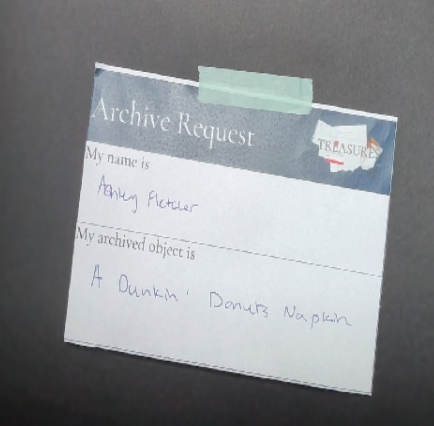 Archive Request
TREASURES
My name is
Ashley Fletcher
My archived object is
A Dunkin' Donuts Napkin